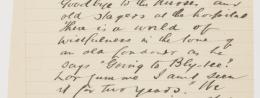 Goodbye to the nurses and
old stagers at the hospital
There is a world of
wistfulness in the tone of
an old Londoner as he
says "Going to Bly-tee?
Lor gum me I aint seen
it for two years. We